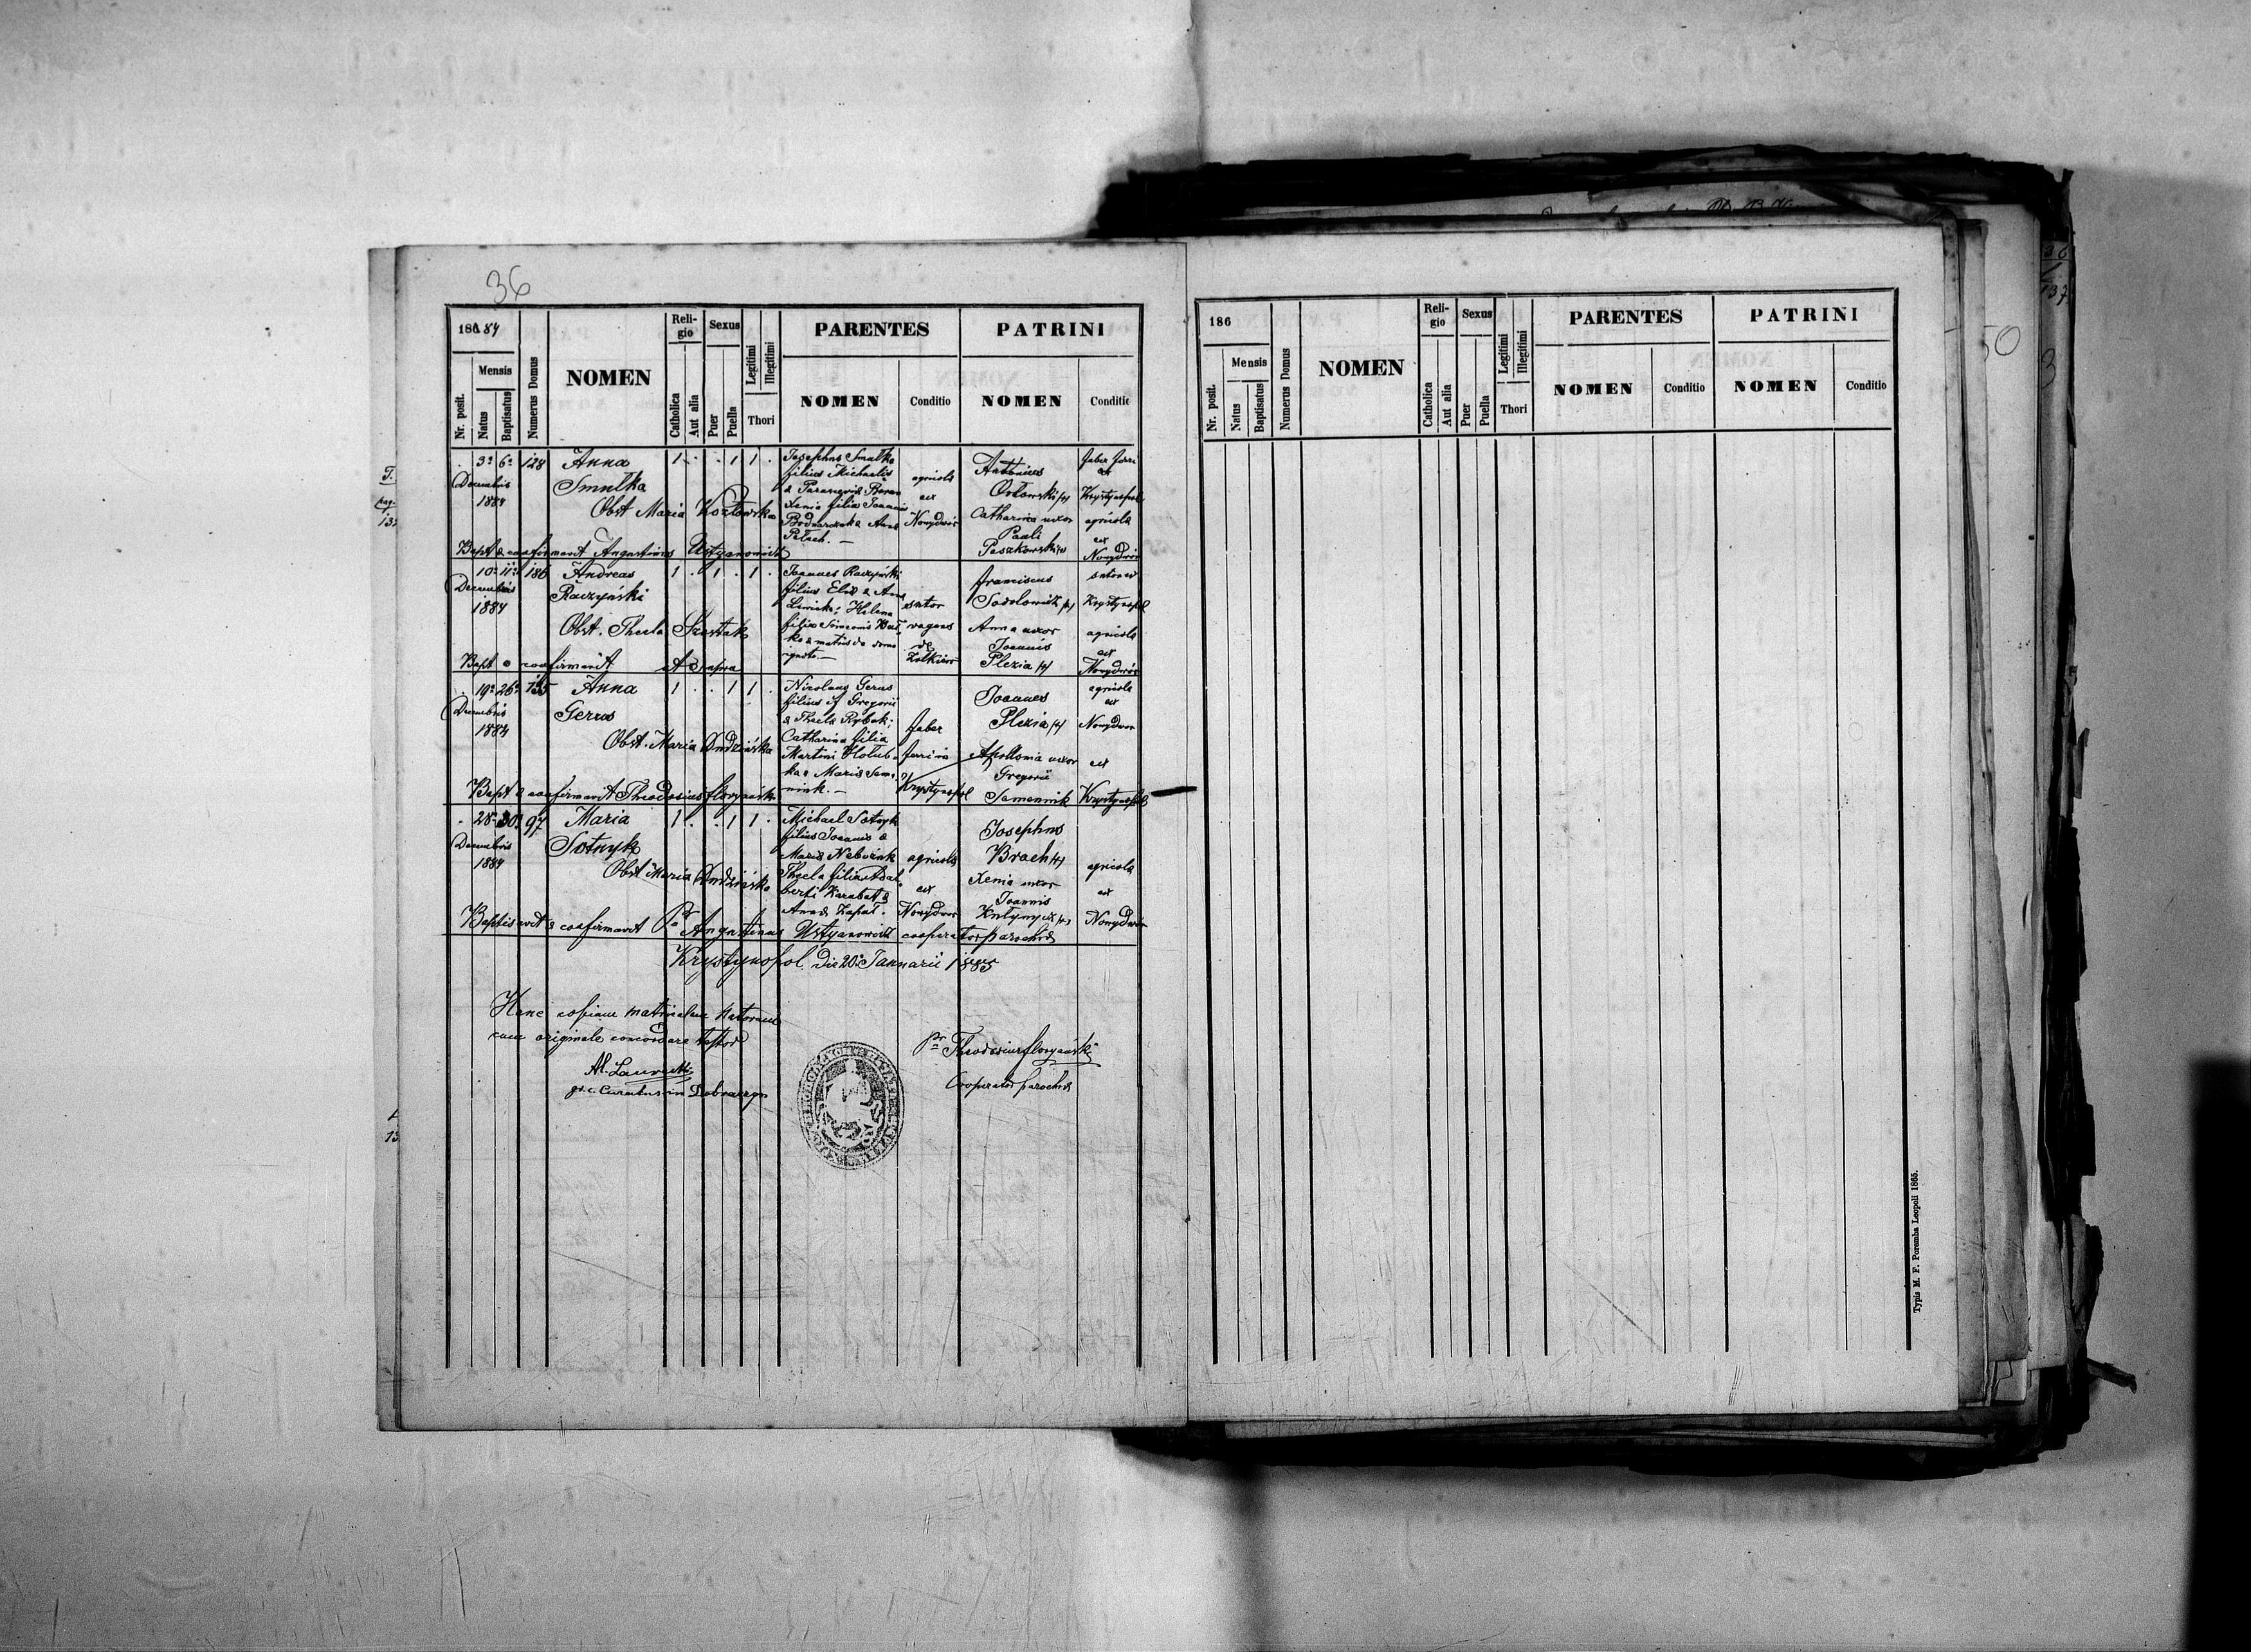 36
186.84
Nr. posit.
Mensis
Natus
Baptisatus
Numerus Domus
NOMEN
Reli-
gio
Catholica
Aut alia
Sexus
Puer
Puella
Legitimi
Illegitimi
Thori
PARENTES
NOMEN
Conditio
PATRINI
NOMEN
Conditio
3a 6a 128 Anna 1 . . 1 1 .
Decembris
1884
Smulka
Obst Maria Kozłowska
Josephus Smulka
filius Michaelis
& Parasceviae Baran
Xenia filia Joannis
Bodnarczuk & Anna
agricola
ex
Nowydwór
Antonius
Orłowski
Catharina uxor
Pauli
Paszkowski
faber ferri
ex
Krystynopol
agricola
ex
Nowydwór
Bapt & confirmavit Augustinus Ustyanowicz
10a 11a 186 Andreas 1 . 1 . 1 .
Decembris
1884
Raczyński
Obst. Thecla Szostak
Joannes Raczyński
filius Eliae & Anna
Helena
filia Simeonis
& matris de domo
ignota
sutor
vagans
de
Żółkiew
Franciscus
Anna uxor
Joannis
Plezia
sutor ex
Krystynopol
agricola
ex
Nowydwór
Bapt & confirmavit
19a 26a 135 Anna 1 . . 1 1 .
Decembris
1884
Gerus
Obst. Maria Dudzińska
Nicolaus Gerus
filius Gregorii
& Thecla Rybak;
Catharina filia
Martini Hołub-
ka & Maria Seme-
niuk.
faber
ferri in
Krystynopol
Joannes
Plezia
Apollonia uxor
Gregorii
Semeniuk
agricola
ex
Nowydwór
ex
Krystynopol
Bapt & confirmavit Theodosius Floryański
28a 30a 97 Maria 1 . . 1 1 .
Decembris
1884
Sotnyk
Obst Maria Dudzińska
Michael Sotnyk
filius Joannis &
Maria
Thecla filia Adal-
berti Karabat &
Anna Zapał.
agricola
ex
Nowydwór
Josephus
Brach
Xenia uxor
Joannis
agricola
ex
Nowydwór
Baptisavit & confirmavit Pr Augustinus Ustyanowicz cooperator parochiae
Krystynopol die 20a Januarii 1885
Hanc copiam matricalem Natorum
cum originale concordare testor
gr. c. Curatus in
Pr Theodosius Floryański
Cooperator parochiae
186
Nr. posit.
Mensis
Natus
Baptisatus
Numerus Domus
NOMEN
Reli-
gio
Catholica
Aut alia
Sexus
Puer
Puella
Legitimi
Illegitimi
Thori
PARENTES
NOMEN
Conditio
PATRINI
NOMEN
Conditio
Typis M. F. Poremba Leopoli 1865.
50
36
137